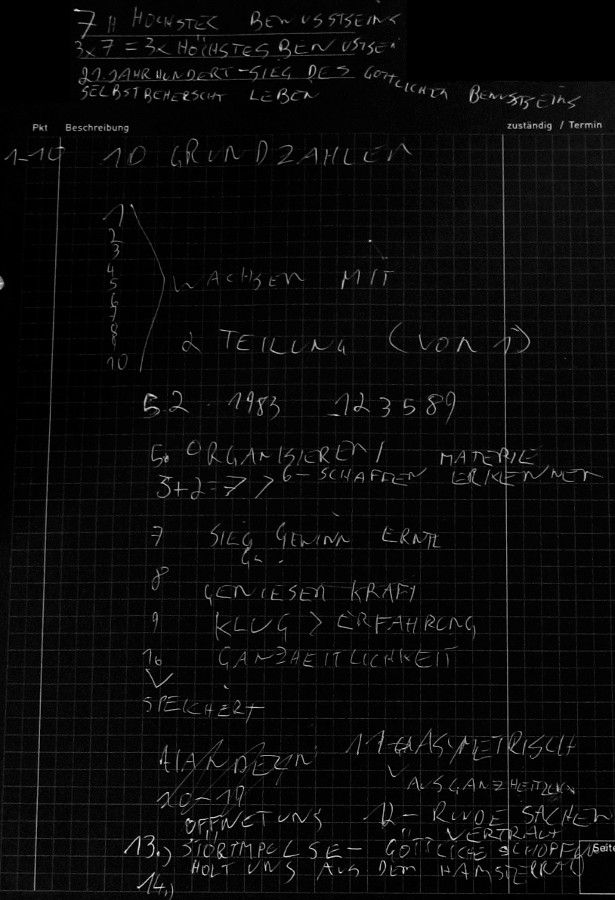 7 HÖCHSTES BEWUSSTSEINS
3x7 = 3x HÖCHSTES BEWUSTSEI
21. JAHRHUNDERT - SIEG DES GÖTTLICHEN BEWUSTSEINS
SELBSTBEHERSCHT LEBEN
Pkt Beschreibung zuständig / Termin
1-10 10 GRUNDZAHLEN
1
2
3
4
5
6
7
8
10
WACHSEN MIT
2 TEILUNG (VON 1)
5.2 . 1983 123589
5. ORGANISIEREN / MATERIE
5+2=7 > 6- SCHAFFEN ERKENNEN
7 SIEG GEWINN ERNTE
8 GENIESEN KRAFT
9 KLUG > ERFAHRUNG
10 GANZHEITLICHKEIT
SPEICHERT
HANDELN 11 ASYMETRISCH
AUS GANZHEITLICH
10-19
ÖFFNET UNS 12 - RUNDE SACHEN
VERTRAUT
13.) STÖRIMPULSE - GÖTTLICHE SCHÖPFUNG
HOLT UNS AUS DEM HAMSTERRAD
Seite
14.)